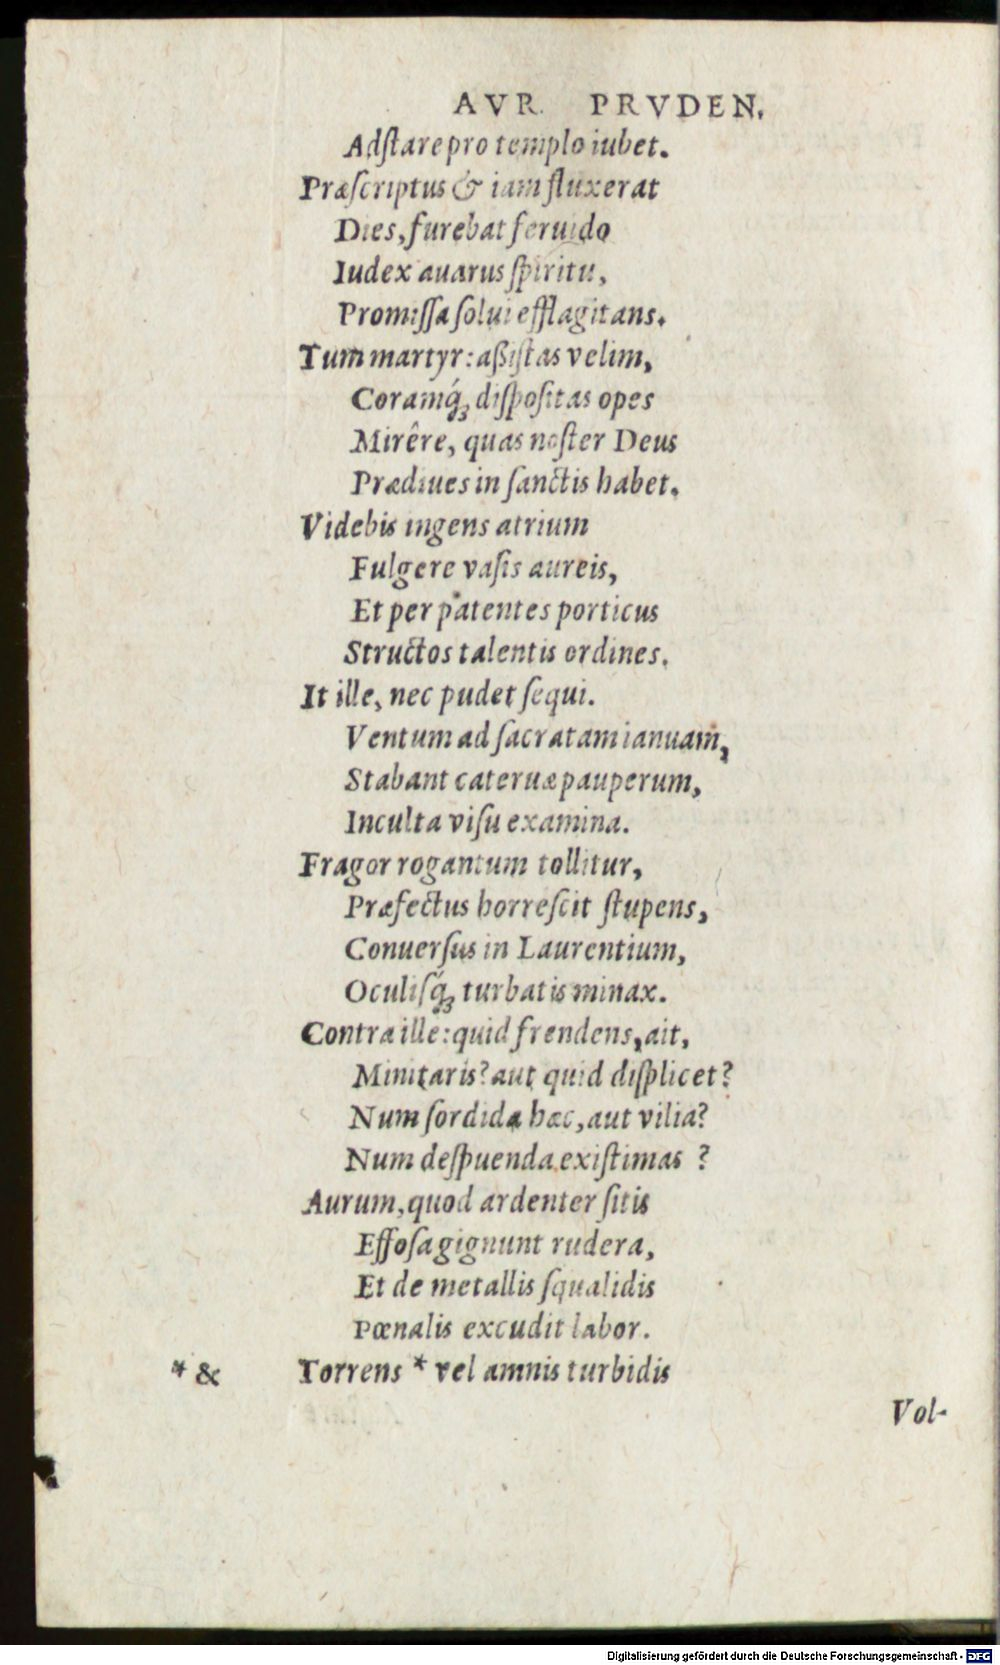 AVR. PRVDEN.
Adſtare pro templo iubet.
Præſcriptus & iam fluxerat
Dies, furebat feruido
Iudex auarus ſpiritu,
Promiſſa ſolui efflagitans.
Tum martyr: aßiſtas velim,
Coramq́ꝫ diſpoſitas opes
Mirêre, quas noſter Deus
Prædiues in ſanctis habet.
Videbis ingens atrium
Fulgere vaſis aureis,
Et per patentes porticus
Structos talentis ordines.
It ille, nec pudet ſequi.
Ventum ad ſacratam ianuam,
Stabant cateruæ pauperum,
Inculta viſu examina.
Fragor rogantum tollitur,
Præfectus horreſcit ſtupens,
Conuerſus in Laurentium,
Oculiſq́ꝫ turbatis minax.
Contra ille: quid frendens, ait,
Minitaris? aut quid diſplicet?
Num ſordida hæc, aut vilia?
Num deſpuenda exiſtimas ?
Aurum, quod ardenter ſitis
Effoſa gignunt rudera,
Et de metallis ſqualidis
Pœnalis excudit labor.
* & Torrens * vel amnis turbidis
Vol-
Digitalisierung gefördert durch die Deutsche Forschungsgemeinschaft - DFG